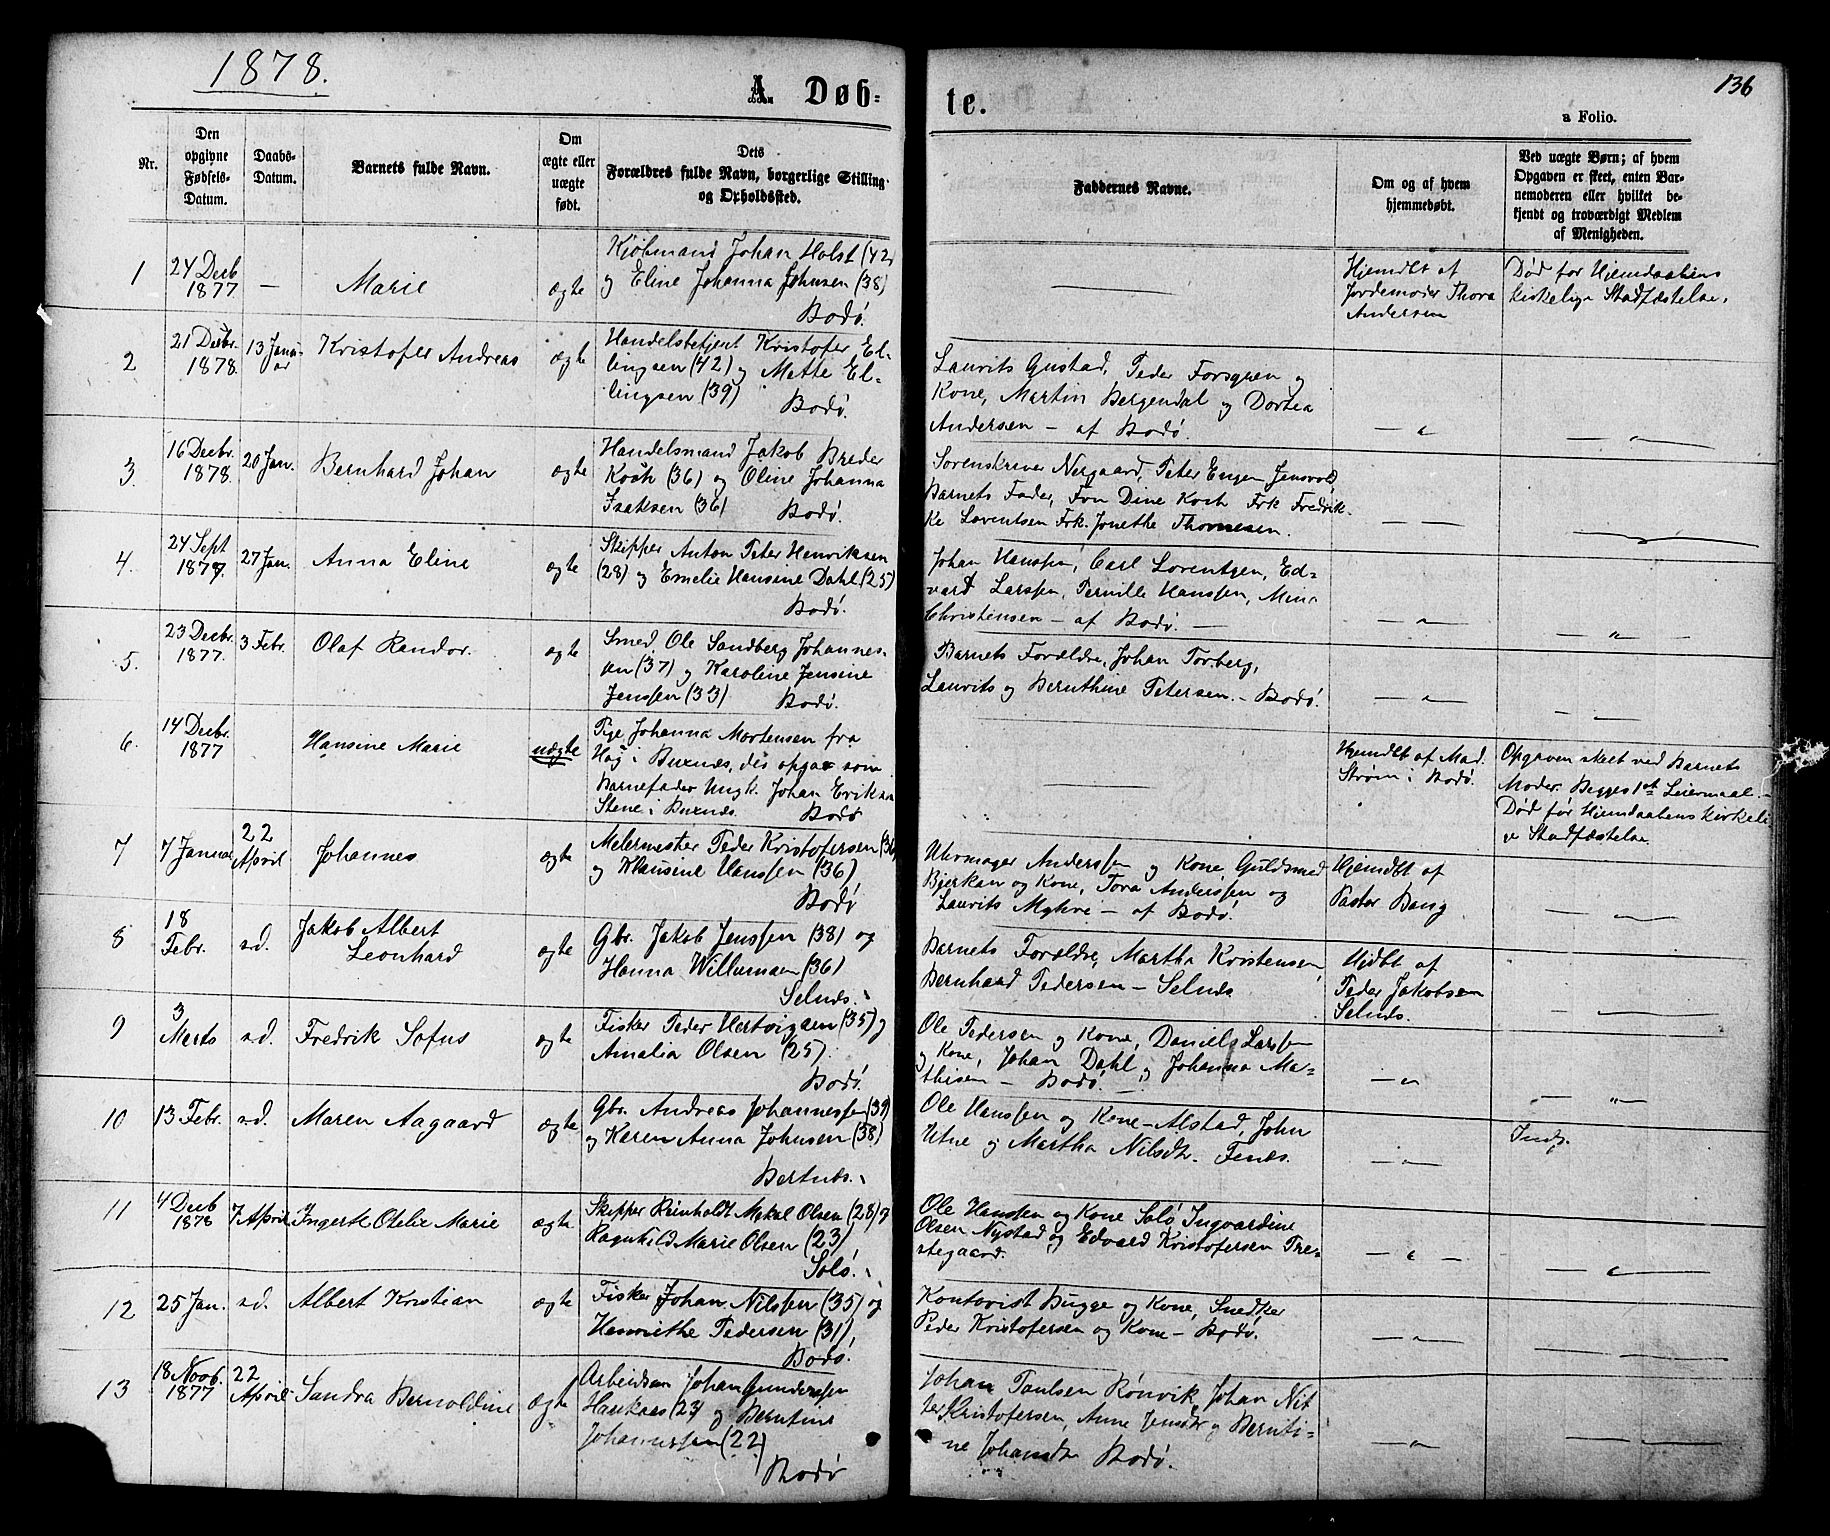 1878.
A. Døb=
te.
136
a Folio.
Nr.
Den opgivne Fødsels-Datum.
Daabs-Datum.
Barnets fulde Navn.
Om ægte eller uægte født.
Dets
Forældres fulde Navn, borgerlige Stilling
og Opholdssted.
Faddernes Navne.
Om og af hvem
hjemmedøbt.
Ved uægte Børn; af hvem
Opgaven er skeet, enten Bar-
nemoderen eller hvilket be-
kjendt og troværdigt Medlem
af Menigheden.
1
24 Decb
1877
—
Marie
ægte
Kjøbmand Johan Holst (42)
og Eline Johanna Johnsen (38)
Bodø.
Hjemdbt af
Jordemoder Thora
Andersen
Død før Hjemdaabens
kirkelige Stadfæstelse.
2
21 Decbr.
1878.
13 Janu-
ar
Kristofer Andreas
ægte
Handelsbetjent Kristofer El-
lingsen (42) og Mette El-
lingsen (39)
Bodø.
Laurits Gustad, Peder Forsgren og
Kone, Martin Bergendal og Dortea
Andersen — af Bodø.
3
16 Decbr.
1878.
20 Jan.
Bernhard Johan
ægte
Handelsmand Jakob Breder
Koch (36) og Oline Johanna
Isaksen (36)
Bodø.
Sorenskriver Nergaard, Peter Eugen Jensvold,
Barnets Fader, Fru Dine Koch Frk Fredrik-
ke Lorentsen Frk. Jonethe Thomesen.
4.
24 Sept
1877.
27 Jan.
Anna Eline
ægte
Skipper Anton Peter Henriksen
(28) og Emelie Hansine Dahl (25)
Bodø.
Johan Hanssen, Carl Lorentzen, Ed-
vard Larssen, Pernille Hanssen, Mina
Christensen — af Bodø. —
5.
23 Decbr.
1877.
3 Febr.
Olaf Randor.
ægte
Smed Ole Sandberg Johannes-
sen (37) og Karoline Jensine
Jenssen (33)
Bodø.
Barnets Forældre, Johan Torberg,
Laurits og Bernthine Petersen. — Bodø.
6.
14 Decbr.
1877
Hansine Marie
uægte
Pige Johanna Mortensen fra
Høg i Buxnæs, der opgav som
Barnefader Ungk. Johan Eriksen
Stene i Buxnæs.
Bodø
Hjemdbt af Mad.
Strøm i Bodø.
Opgaven skeet ved Barnets
Moder. Begges 1st Leiermaal. —
Død før Hjemdaabens kirkeli-
ge Stadfæstelse
7
7 Januar
22
April
Johannes
ægte
Melermester Peder Kristofersen (36)
og Klausine Hanssen (36)
Bodø
Uhrmager Anderssen og Kone, Guldsmed
Bjerkan og Kone, Tora Anderssen og
Laurits Myhre — af Bodø.
Hjemdbt af
Pastor Bang
8
18
Febr.
s.d.
Jakob Albert
Leonhard
ægte
Gbr. Jakob Jenssen (38) og
Hanna Willumsen (36)
Selnæs.
Barnets Forældre, Martha Kristensen,
Bernhard Pedersen — Selnæs
Hjdbt af
Peder Jakobsen
Selnæs.
9
3
Merts
s.d.
Fredrik Sofus
ægte
Fisker Peder Hertvigsen (35) og
Amalia Olsen (25).
Bodø.
Ole Pedersen og Kone, Daniels Larssen
og Kone, Johan Dahl og Johanna Ma-
thisen — Bodø. —
10
13 Febr.
s.d.
Maren Aagaard
ægte
Gbr. Andreas Johannessen (39)
og Karen Anna Johnsen (38)
Bertnes.
Ole Hanssen og Kone — Alstad, John
Utne og Martha Nilsdtr. Fenes.
Indg.
11
4 Decb
1878
7 April
Ingerte Otelie Marie
ægte
Skipper Reinholdt Mekal Olsen (28) og
Ragnhild Marie Olsen (23)
Solø.
Ole Hanssen og Kone Solø, Ingvardine
Olsen Nystad og Edvard Kristofersen Pre-
stegaard.
12
25 Jan.
s.d.
Albert Kristian
ægte
Fisker Johan Nilssen (35) og
Henriethe Pedersen (31),
Bodø.
Kontorist Bugge og Kone, Snedker
Peder Kristofersen og Kone — Bodø.
13
18 Novb.
1877
22
April
Sandra Bernoldine
ægte
Arbeidsm Johan Gunderssen
(23) og Berntine
Johannessen (22)
Bodø
Johan Paulsen Rønvik, Johan Pet-
ter Kristofersen, Anne Jensdtr og Bernti-
ne Johansdtr Bodø.